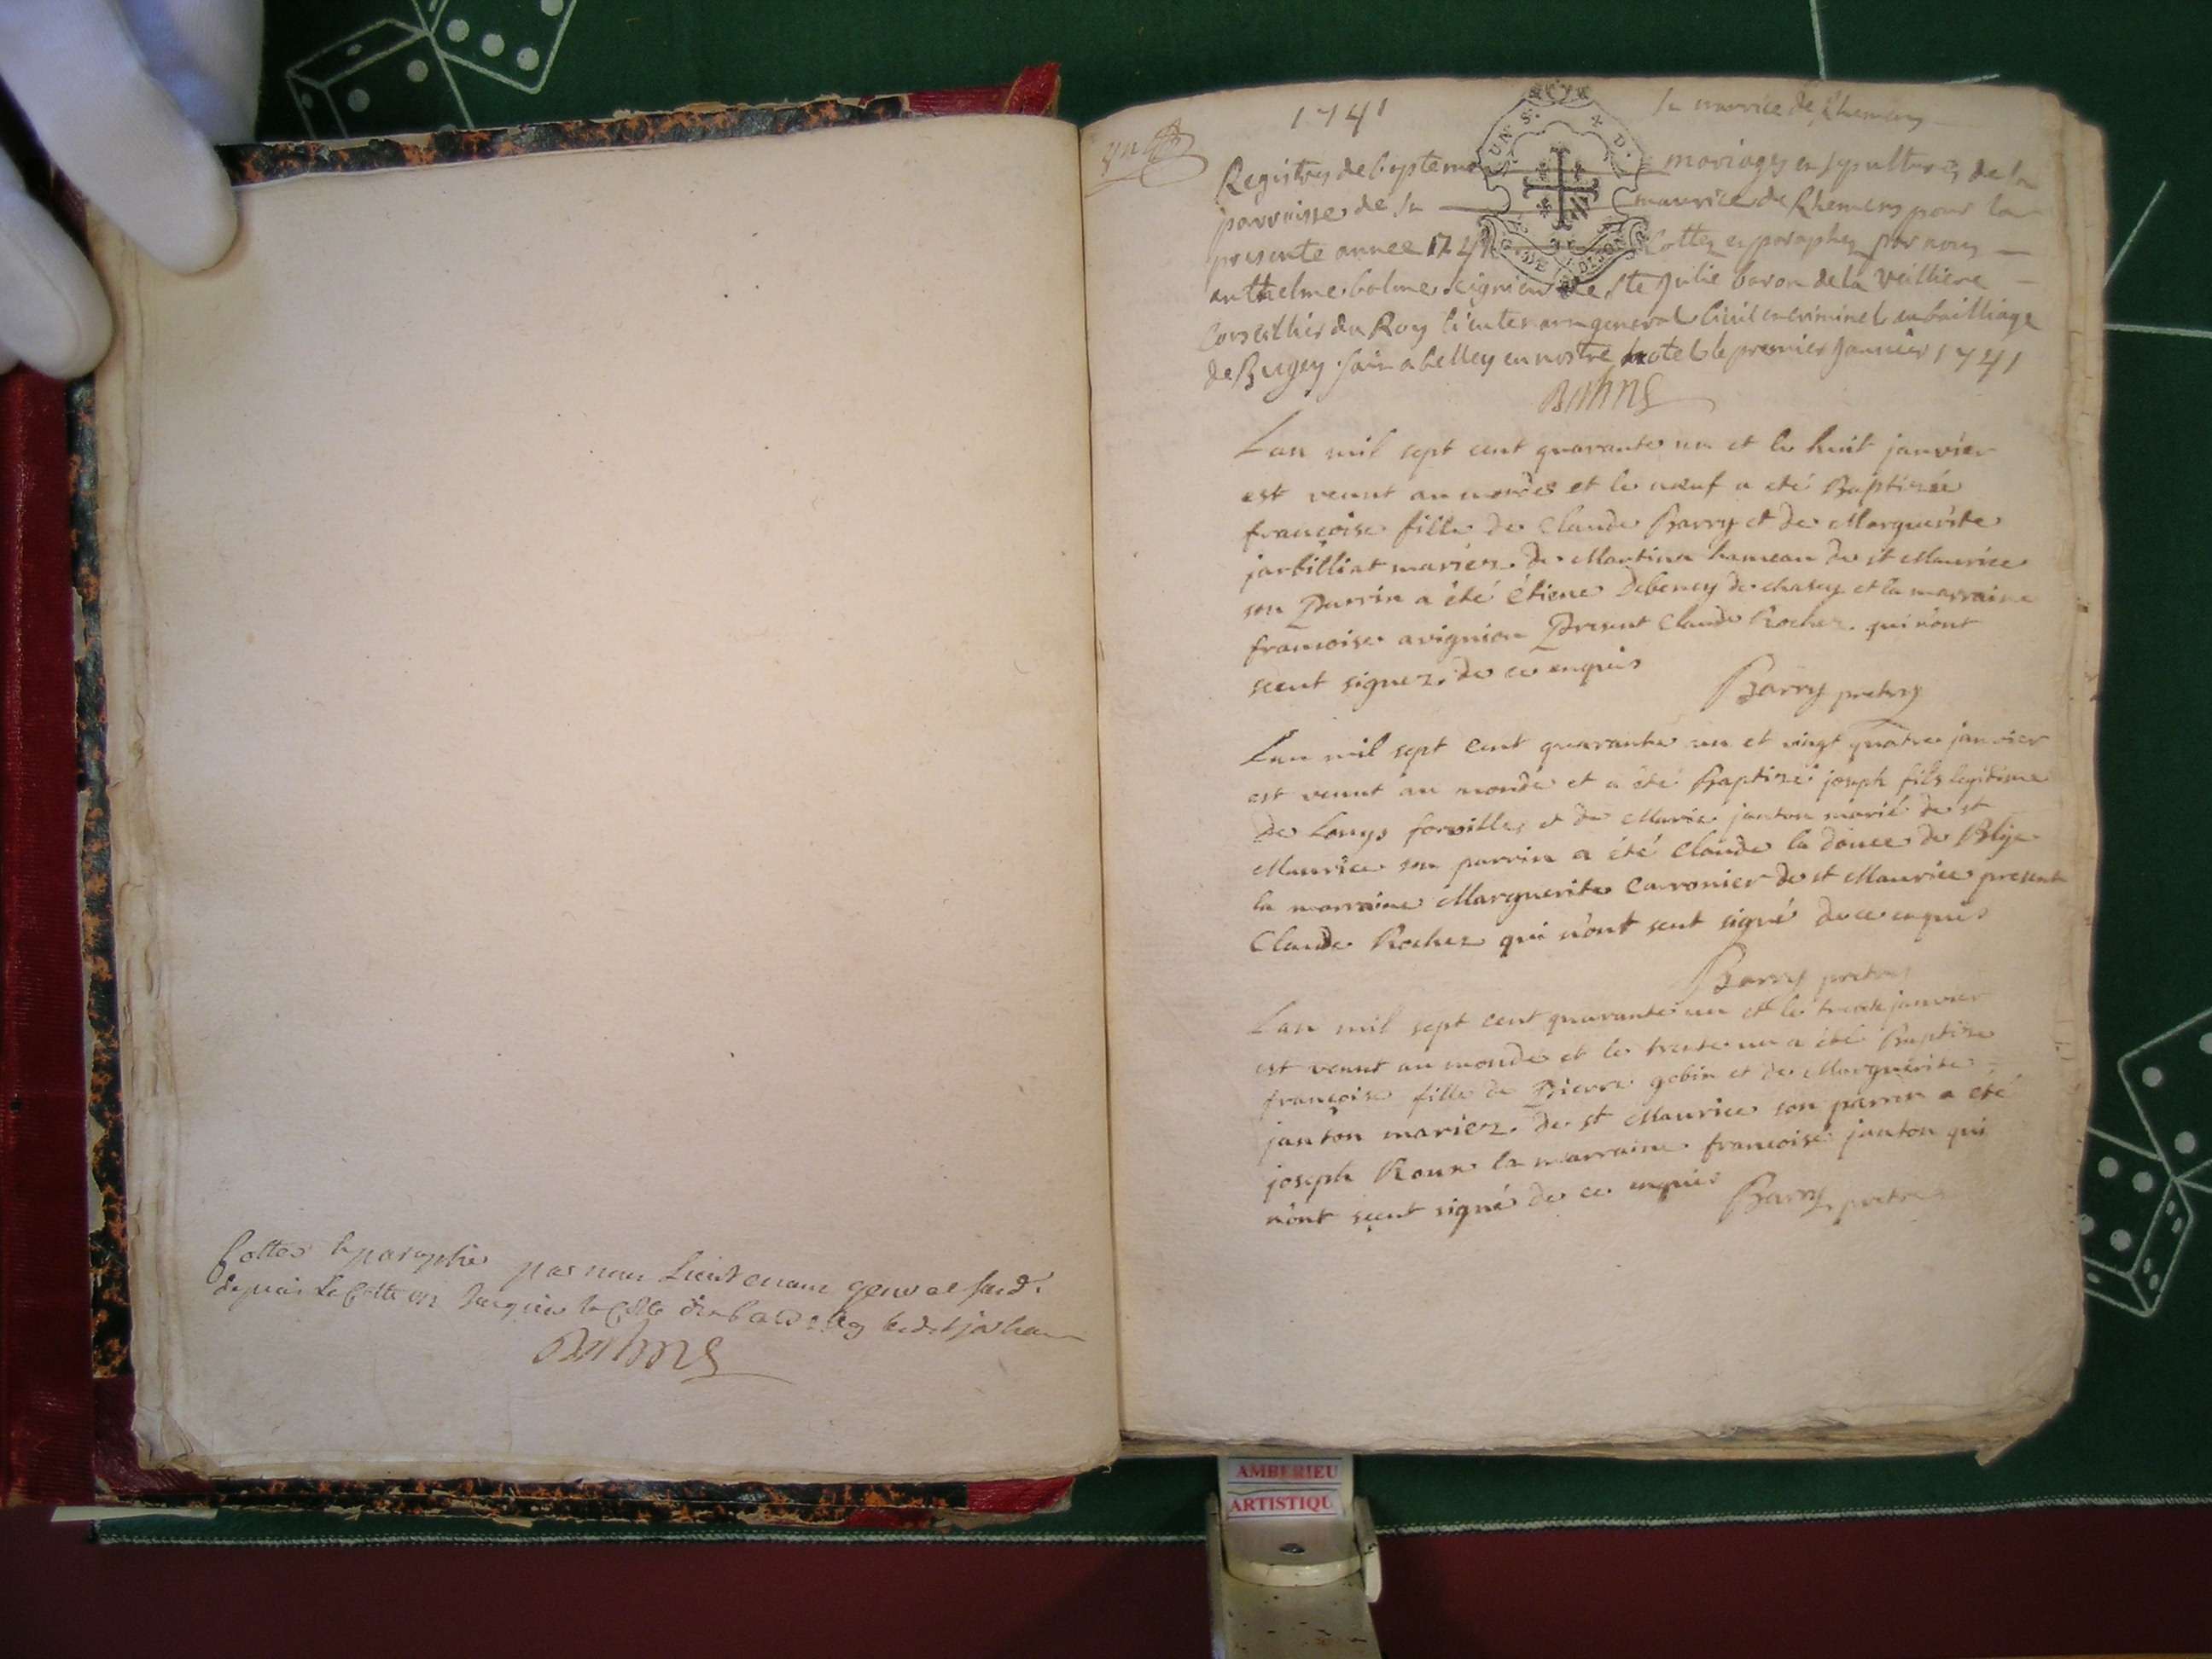 Cottés & paraphés par nous Lieutenant general susd.
depuis la Cotte un jusques la Cotte
Balme
1741
St maurice de Rhemens
Registres de baptemes mariages en sepultures de la
parroisse de St maurice de Rhemens pour la
presente annee 1741 Cottez en paraphez par nous
anthelme balme seigneur de Ste Julie baron de la veilliere
Conseillier du Roy lieutenant general Civil en criminel au bailliage
de Bugey fait a belley en nostre hotel le premier Janvier 1741
Balme
UN S. D.
DE DIJON
Lan mil sept cent quarante un et le huit janvier
est venut au monde et le nœuf a eté Baptizée
françoise fille de Claude Barry et de Marguerite
jarbilliat mariez de Martina hameau de st Maurice
son Parrin a été étiene Debeney de chasey et la marraine
francoise avignion Present Claude Rochez qui n'ont
sceut signez de ce enquis
Barry pretre
Lan mil sept Cent quarante un et vingt quatre janvier
est venut au monde et a été Baptizé joseph fils legitime
de Louys forville et de Marie janton marié de st
Maurice son parrin a été Claude la douce de Blye
la marraine Marguerite Carronier de st Maurice present
Claude Rochez qui n'ont sent signé de ce enquis
Barry pretre
Lan mil sept cent quarante un et le trente janvier
est venut au monde et le trente un a été Baptize
françoise fille de Pierre gobin et de Marguerite
janton mariez de st Maurice son parrin a eté
joseph Roux la marraine francoise janton qui
n'ont sceut signé de ce enquis
Barry pretre
AMBERIEU
ARTISTIQU